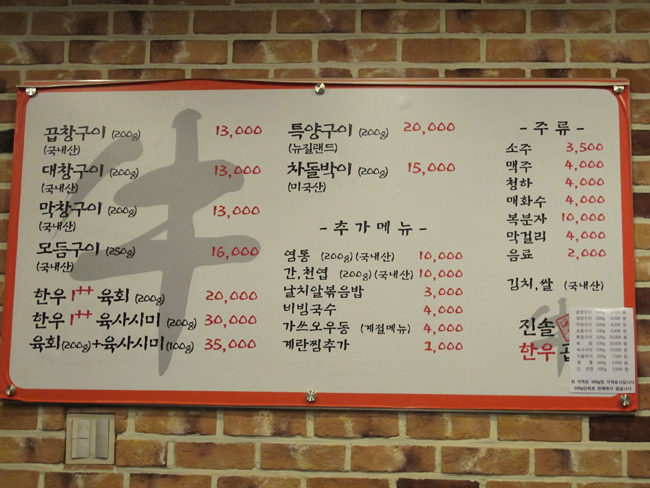 곱창구이 (200g) 13,000
(국내산)
대창구이 (200g) 13,000
(국내산)
막창구이 (200g) 13,000
(국내산)
모듬구이 (250g) 16,000
(국내산)
한우 1++ 육회 (200g) 20,000
한우 1++ 육사시미 (200g) 30,000
육회(200g)+육사시미(100g) 35,000
특양구이 (200g) 20,000
(뉴질랜드)
차돌박이 (200g) 15,000
(미국산)
- 추가메뉴 -
염통 (200g) (국내산) 10,000
간,천엽 (200g) (국내산) 10,000
날치알볶음밥 3,000
비빔국수 4,000
가쓰오우동 (계절메뉴) 4,000
계란찜추가 1,000
- 주 류 -
소주 3,500
맥주 4,000
청하 4,000
매화수 4,000
복분자 10,000
막걸리 4,000
음료 2,000
김치,쌀 (국내산)
진솔
한우 곱
牛